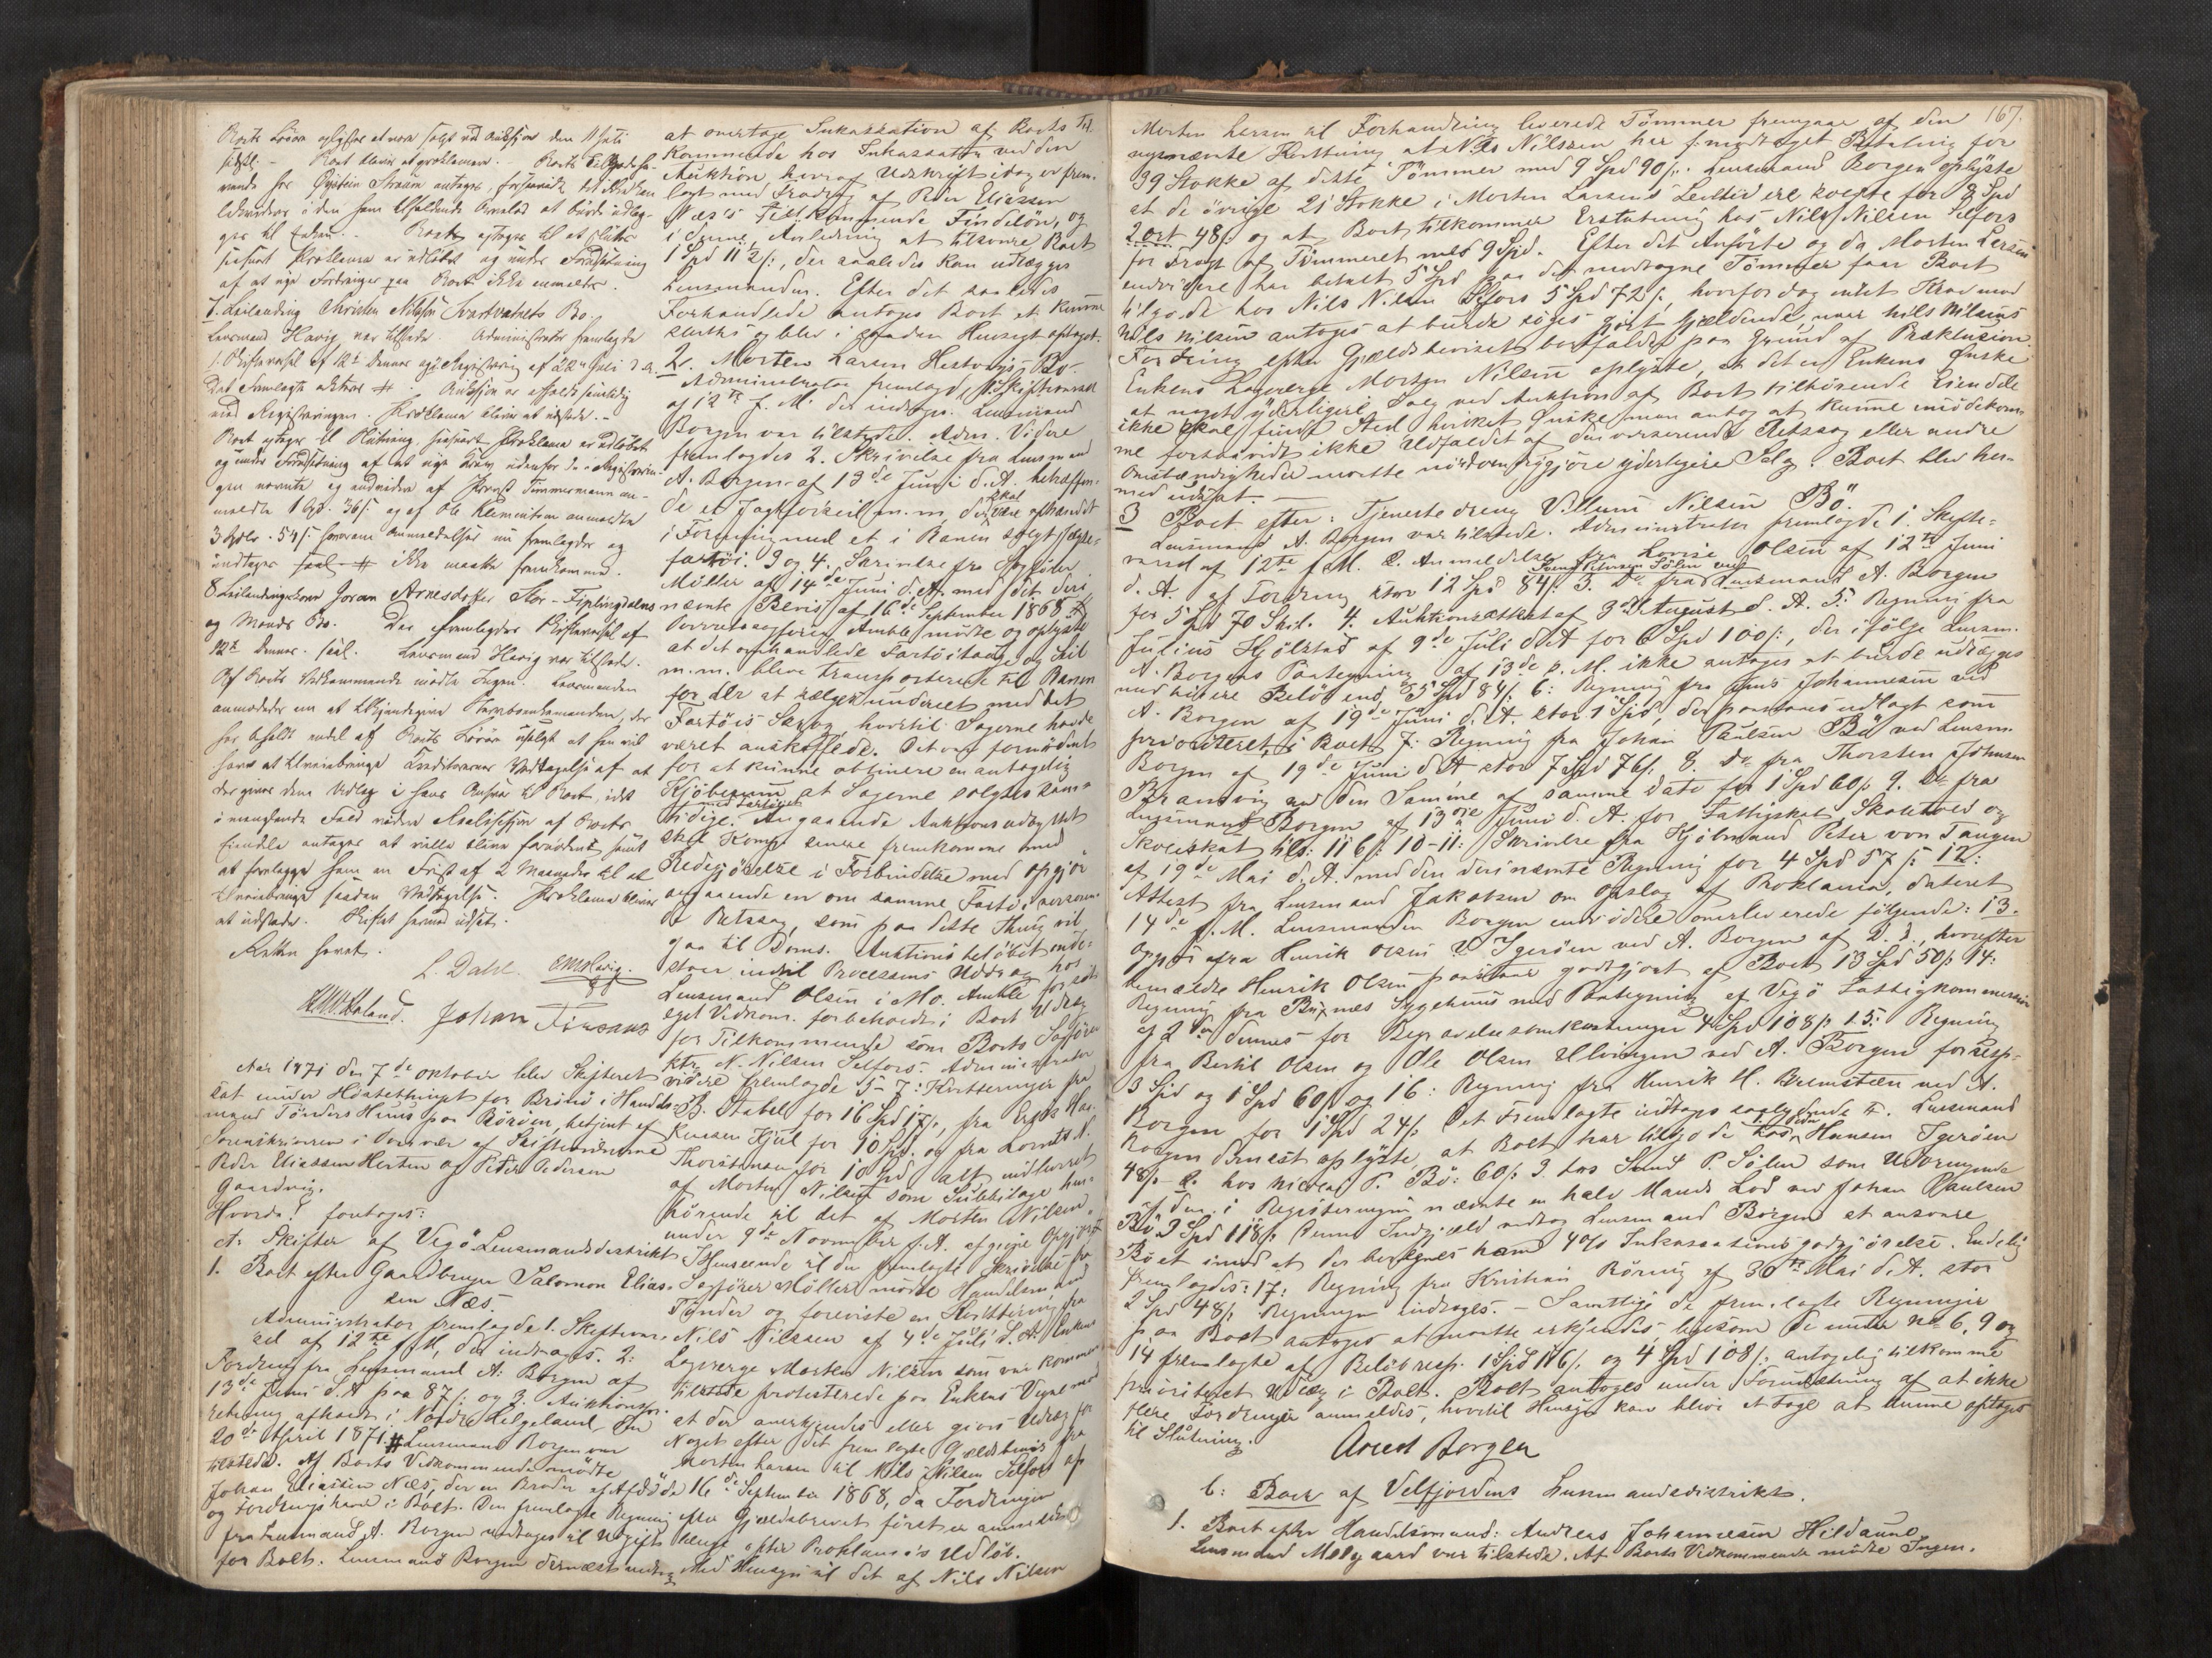 Boets Løsøre oplystes at være solgt ved Auktion den 11 Juli
sidstl. - Boet bliver at proklamere. Boets Tilgodeha-
vende hos Øystein Strøm antages, forsaavidt det ikke kan
at den ham tilfaldende Arvelod at burde udlæg-
ges til Enken. Boet optages til at sluttes
saasnart Proklama er udløbet og under Forudsætning
af at nye Fordringer paa Boet ikke anmeldes.
7. Leilænding Christen Nilsen Svartvatnets Bo.
Lensmand Havig var tilstede. Administrator fremlagde
1. Skiftevarsel af 12te Dennes og 2 Registrering af 22de Juli d. A.
Det Fremlagte indtages #. Auktion er afholdt samtidig
med Registreringen. Proklama bliver at udstede. -
Boet optages til Slutning saasnart Proklama er udløbet
og under Forudsætning af at nye Krav udenfor de i Registrerin-
gen nævnte og endvidere af Provst Timmermann an-
meldte 1 Spd. 36 ß og af Ole Klementsen anmeldte
3 Spdlr. 54 ß hvorom Anmeldelser nu fremlagdes og
indtages saal. # ikke maatte fremkomme.
8 Leilændingskone Joran Arnesdatter Stor-Fiplingdalens
og Mands Bo. Der fremlagdes Skiftevarsel af
12te Dennes. saal. Lensmand Havig var tilstede.
Af Boets Vedkommende mødte Ingen. Lensmanden
anmodedes om at tilkjendegive Gjenlevende Manden, der
har beholdt endel af Boets Løsøre usolgt at han vil
have at tilveiebringe Kreditorernes Vedtagelse af at
der gives dem Udlæg i hans Ansvar til Boet, idet
i manglende Fald videre Realisation af Boets
Eiendele antages at ville blive fornødent samt
at forelægge ham en Frist af 2 Maaneder til at
tilveiebringe saadan Vedtagelse. Proklama bliver
at udstede. Skiftet hermed udsat.
Retten hævet.
L. Dahl. Havig.
Johan
Aar 1871 den 7de Oktober blev Skifteret
sat under Høstethinget for Brønø i Handels-
mand Tønders Huus paa Rørøen, betjent af
Sorenskriveren i Overvær af Skiftevidnerne
Peder Eliassen Horten og Peder Pedersen
Gaardvig.
Hvorda! foretoges:
A: Skifter af Vegø Lensmandsdistrikt
1. Boet efter Gaardbruger Salomon Elias-
sen Næs.
Administrator fremlagde 1. Skiftevar-
sel af 12te f.M, der indtages. 2:
Fordring fra Lensmand A: Borgen af
13de Juni d. A paa 87 ß: og 3. Auktionsfor-
retning afholdt i Nordre Helgeland den
20de April 1871 # Lensmand Borgen var
tilstede. Af Boets Vedkommende mødte
Johan Eliassen Næs, der en Broder af Afdøde
og Fordringshaver i Boet. Den fremlagte Regning
fra Lensmand A. Borgen vedtages til Udgift
for Boet. Lensmand Borgen dernæst vedtog
at overtage Inkassation af Boets Til-
kommende hos Inkassator ved den
Auktion hvoraf Udskrift idag er frem-
lagt med Fradrag af Peder Eliassen
Næs's Tilkommende Findeløn, og
i denne Anledning at tilsvare Boet
1 Spd 112 ß:, der saaledes kan udlægges
Lensmanden. Efter det saaledes
Forhandlede antoges Boet at kunne
sluttes og blev i saadan Hensigt optaget.
2. Morten Larsen Hestvigs Bo.
Administrator fremlagde 1. Skiftevarsel
af 12te f. M. der indtages. Lensmand
Borgen var tilstede. Adm. Videre
fremlagdes 2. Skrivelse fra Lensmand
A. Borgen af 13de Juni d. A. betræffen-
de et Jagtforseil m. m, der skal være afhændet
i Forening med et i Ranen solgt Jægte-
fartøi. 3 og 4. Skrivelse fra Sagfører
Møller af 14de Juni d. A. med det deri
nævnte Bevis af 16de September 1868 #
Overretssagfører Amble mødte og oplyste
at det omhandlede Fartøitouge og Seil
m.m. bleve transporterede til Ranen
for der at sælges underet med det
Fartøis Skrog, hvortil Sagerne havde
været anskaffede. Det var fornødent
for at kunne obtinere en antagelig
Kjøbesum at Sagerne solgtes sam-
tidige med Fartøiet. Angaaende Auktionsudbyttet
skal Komp. senere fremkomme med
Redegjørelse i Forbindelse med Opgjør
angaaende en om samme Fartøi verseren-
de Retssag, som paa dette Thing vil
gaa til Doms. Auktionsbeløbet inde-
staar indtil Processens Uddrag hos
Lensmand Olsen i Mo. Amble for sit
eget Vedkom. forbeholdt i Boet Udlæg
for Tilkommende som Boets Sagfører
ktr. N. Nilsen Selfors. Administrator
videre fremlagde 5-7: Kvitteringer fra
B. Stabel for 16 Spd 17 ß, fra Erik Ha-
kensen Kjul for 10 Spd. og fra Lorents N.
Thorstensen for 10 Spd alt indleveret
af Morten Nilsen som Subbilage hen-
hørende til det af Morten Nilsen
under 9de November f. A. afgivne Opgjør #
I Henseende til den fremlagte Skrivelse fra
Sagfører Møller mødte Handelsmand
Tønder og foreviste en Kvittering fra
Nils Nilssen af 4de Juli d. A. Enkens
Lagverge Morten Nilsen som var kommen
tilstede protesterede paa Enkens Vegne mod
at der anerkjendes eller gives Udlæg for
Noget efter det fremlagte Gjældsbevis fra
Morten Larsen til Nils Nilsen Selfors af
16de September 1868, da Fordringen
efter Gjældsbrevet først er anmeldt
længe efter Proklama's Udløb.
Med Hensyn til det af Nils Nilsen
167.
Morten Larsen til Forhandling leverede Tømmer fremgaar af den
nysnævnte Kvittering at Nils Nilssen har modtaget Betaling for
39 Stokke af dette Tømmer med 9 Spd 90 ß:. Lensmand Borgen oplyste
at de øvrige 21 Stokke i Morten Larsens Levetid ere solgte for 8 Spd
2 ort 48 ß: og at Boet tilkommer Erstatning hos Nils Nilsen Selfors
for Fragt af Tømmeret med 9 Spd. Efter det Anførte og da Morten Larsen
endvidere har betalt 5 Spd paa det modtagne Tømmer faar Boet
tilgode hos Nils Nilsen Selfors 5 Spd 72 ß:, hvorfor dog intet Krav mod
Nils Nilsen antoges at burde søges gjort gjældende, naar Nils Nilsens
Fordring efter Gjældsbeviset bortfalder paa Grund af Præklusion.
Enkens Lagverge Morten Nilsen oplyste, at det er Enkens Ønske
at noget yderligere Salg ved Auktion af Boet tilhørende Eiendele
ikke skal finde Sted hvilket Ønske man antog at kunne imødekom-
me forsaavidt ikke Udfaldet af den verserende Retssag eller andre
Omstændigheder maatte nødvendiggjøre yderligere Salg. Boet blev her-
med udsat. -
3 Boet efter: Tjenestedreng Villum Nilsen Bö.
Lensmand A. Borgen var tilstede. Administrator fremlagde 1. Skifte-
varsel af 12te f. M. 2. Anmeldelse fra Lovise Olsen af 12te Juni
d. A. af Fordring stor 12 Spd 84 ß: 3. Do fra Svend Petersen Sölen ved Lensmand A. Borgen
for 5 Spd 70 Skil. 4. Auktionsattest af 3die August d. A. 5: Regning fra
Julius Hjölstad af 9de Juli d. A for 6 Spd 100 ß:, der ifølge Lensm.
A. Borgens Paategning af 13de s. M. ikke antages at burde udlægges
med høiere Beløb end 5 Spd 84 ß. 6: Regning fra Jens Johannesen ved
A. Borgen af 19de Juni d. A. stor 1 Spd, der paastaaes udlagt som
prioriteret i Boet 7. Regning fra Johan Paulsen Bö ved Lensm.
Borgen af 19de Juni d. A stor 7 Spd 76 ß: 8. Do fra Thorsten Johnsen
Bransvig ved den Samme af samme Dato for 1 Spd 60 ß 9. Do fra
Lensmand Borgen af 13de Juni d. A. for Fattigskat Skolehold og
Skoleskat tils. 116 ß: 10-11: Skrivelse fra Kjøbmand Peter von Tangen
af 19de Mai d. A. med den deri nævnte Regning for 4 Spd 57 ß: 12:
Attest fra Lensmand Jakobsen om Opslag af Proklama, dateret
14de f. M. Lensmanden Borgen endvidere overleverede følgende: 13.
Opgjør fra Henrik Olsen Ygerøen ved A. Borgen af D. D., hvorefter
bemeldte Henrik Olsen paastaar godtgjort af Boet 13 Spd 50 ß 14:
Regning fra Buxnæs Sygehuus med Paategning af Vegø Fattigkommission
af 2den dennes for Begravelsesomkostninger 4 Spd 108 ß 15: Regning
fra Bertil Olsen og Ole Olsen Ulvingen ved A. Borgen for resp.
3 Spd og 1 Spd 60 ß og 16: Regning fra Henrik H. Bremstein ved A.
Borgen for 1 Spd 24 ß: Det Fremlagte indtages saalydende #. Lensmand
Borgen dernæst oplyste at Boet har tilgode hos 1. Peder Hansen Ygerøen
48 ß - 2. hos Nicolai P. Bö: 60 ß 3. hos Svend P. Sölen som Udbringende
af den i Registreringen nævnte en halv Mands Lod ved Johan Paulsen
Bö 3 Spd 118 ß. Denne Indgjæld vedtog Lensmand Borgen at ansvare
Boet imod at der beregnes ham 4% Inkassationsgodtgjørelse. Endelig
fremlagdes: 17: Regning fra Kristian Röring af 30te Mai d. A. stor
2 Spd 48 ß. Regningen indtages. - Samtlige de fremlagte Regninger
paa Boet antoges at maatte erkjendes, ligesom de under No 6, 9 og
14 fremlagte af Beløb resp. 1 Spd 116 ß. og 4 Spd 108 ß: antagelig tilkomme
prioriteret Udlæg i Boet. Boet antoges under Forudsætning af at ikke
flere Fordringer anmeldes, hvortil Hensyn kan blive at tage at kunne optages
til Slutning.
Arent Borgen
B: Boer af Velfjordens Lensmandsdistrikt.
1. Boet efter Handelsmand: Andreas Johannesen Hildaune.
Lensmand Molgaard var tilstede. Af Boets Vedkommende mødte Ingen.